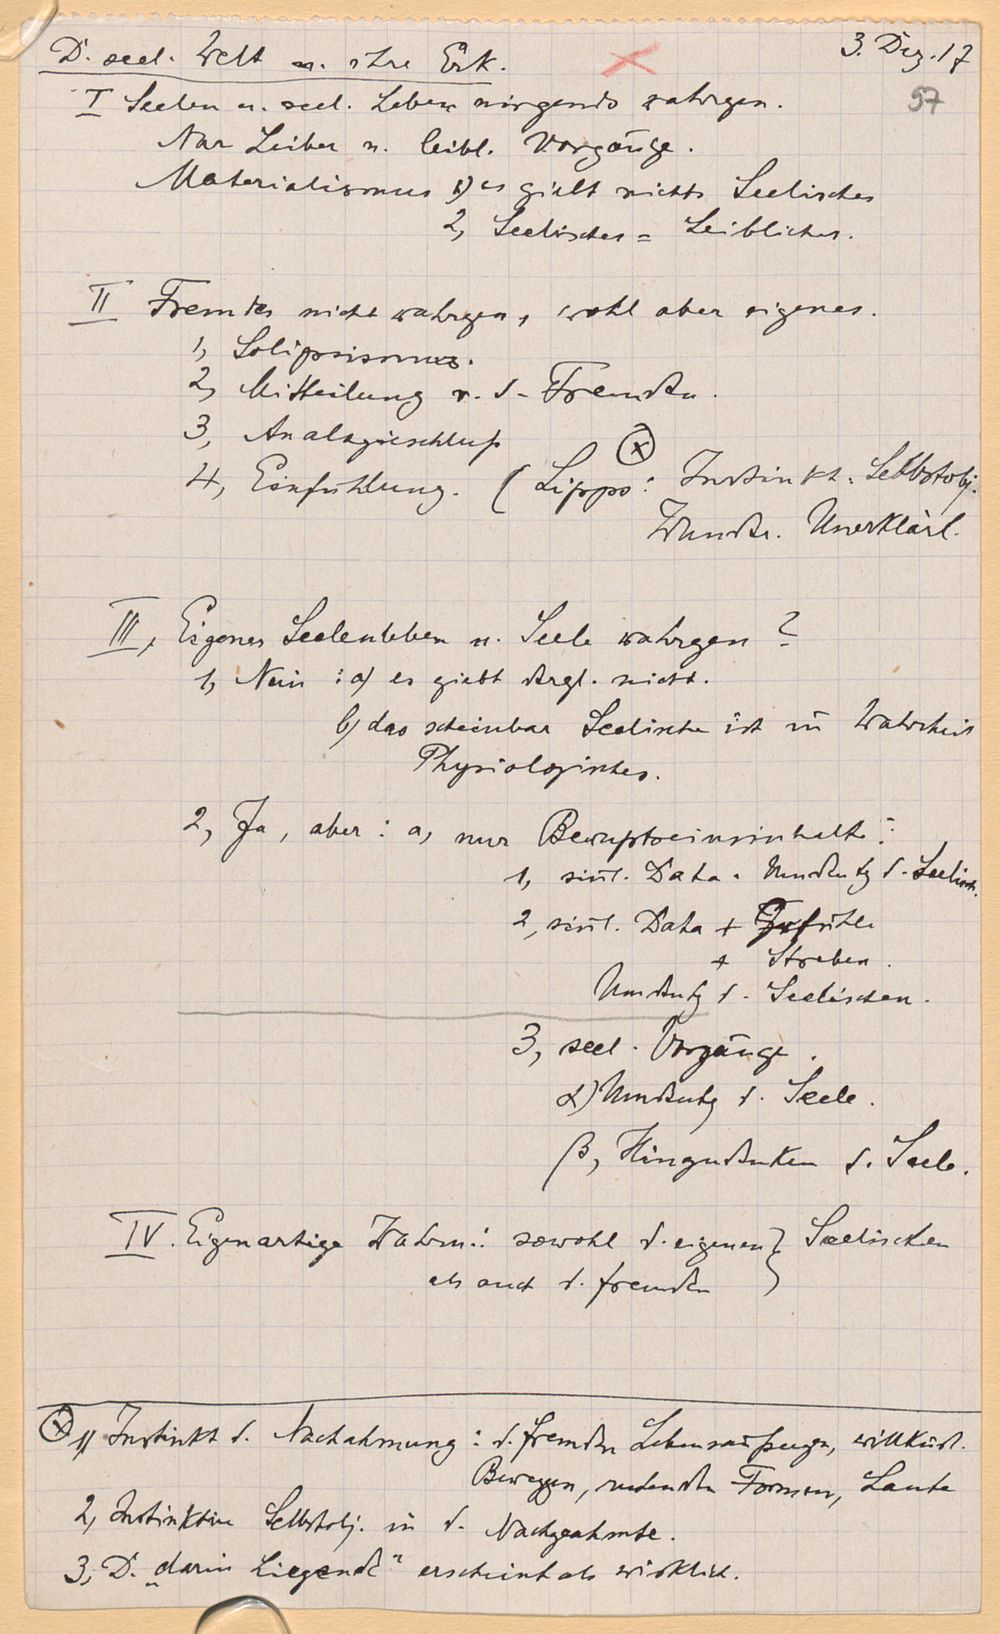 D. seel. Welt u. ihre Erk.
3. Dez. 17
57
I Seelen u. seel. Leben nirgends wahrgen.
Nur Leiber u. leibl. Vorgänge.
Materialismus 1) es giebt nichts Seelisches
2, Seelisches = Leibliches.
II Fremdes nicht wahrgen, wohl aber eigenes.
1, Solipsismus.
2, Mitteilung v. d. Fremden.
3, Analogieschluß
4, Einfühlung. (Lipps: Instinkt. Selbstobj.
Wunder. Unerklärl.
III, Eigenes Seelenleben u. Seele wahrgen?
1, Nein: a) es giebt dergl. nicht.
b) das scheinbar Seelische ist in Wahrheit
Physiologisches.
2, Ja, aber: a, nur Bewußtseinsinhalte:
1, sinl. Data. Umdeutg d. Seelisch.
2, sinl. Data + Gefühle
+ Streben.
Umdeutg d. Seelischen.
3, seel. Vorgänge.
α) Umdeutg d. Seele.
β, Hinzudenken d. Seele.
IV. Eigenartige Wahrn.: sowohl d. eigenen } Seelischen
als auch d. fremden
x 1) Instinkt d. Nachahmung: d. fremden Lebensäußergn, willkürl.
Beweggn, ruhenden Formen, Laute
2, Instinktive Selbstobj. in d. Nachgeahmte.
3, D. „darin Liegende" erscheint als wirklich.